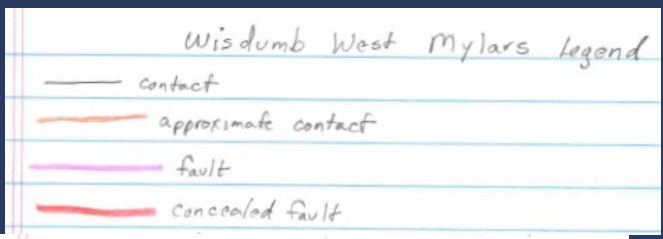 Wisdumb West Mylars Legend
contact
approximate contact
fault
concealed fault